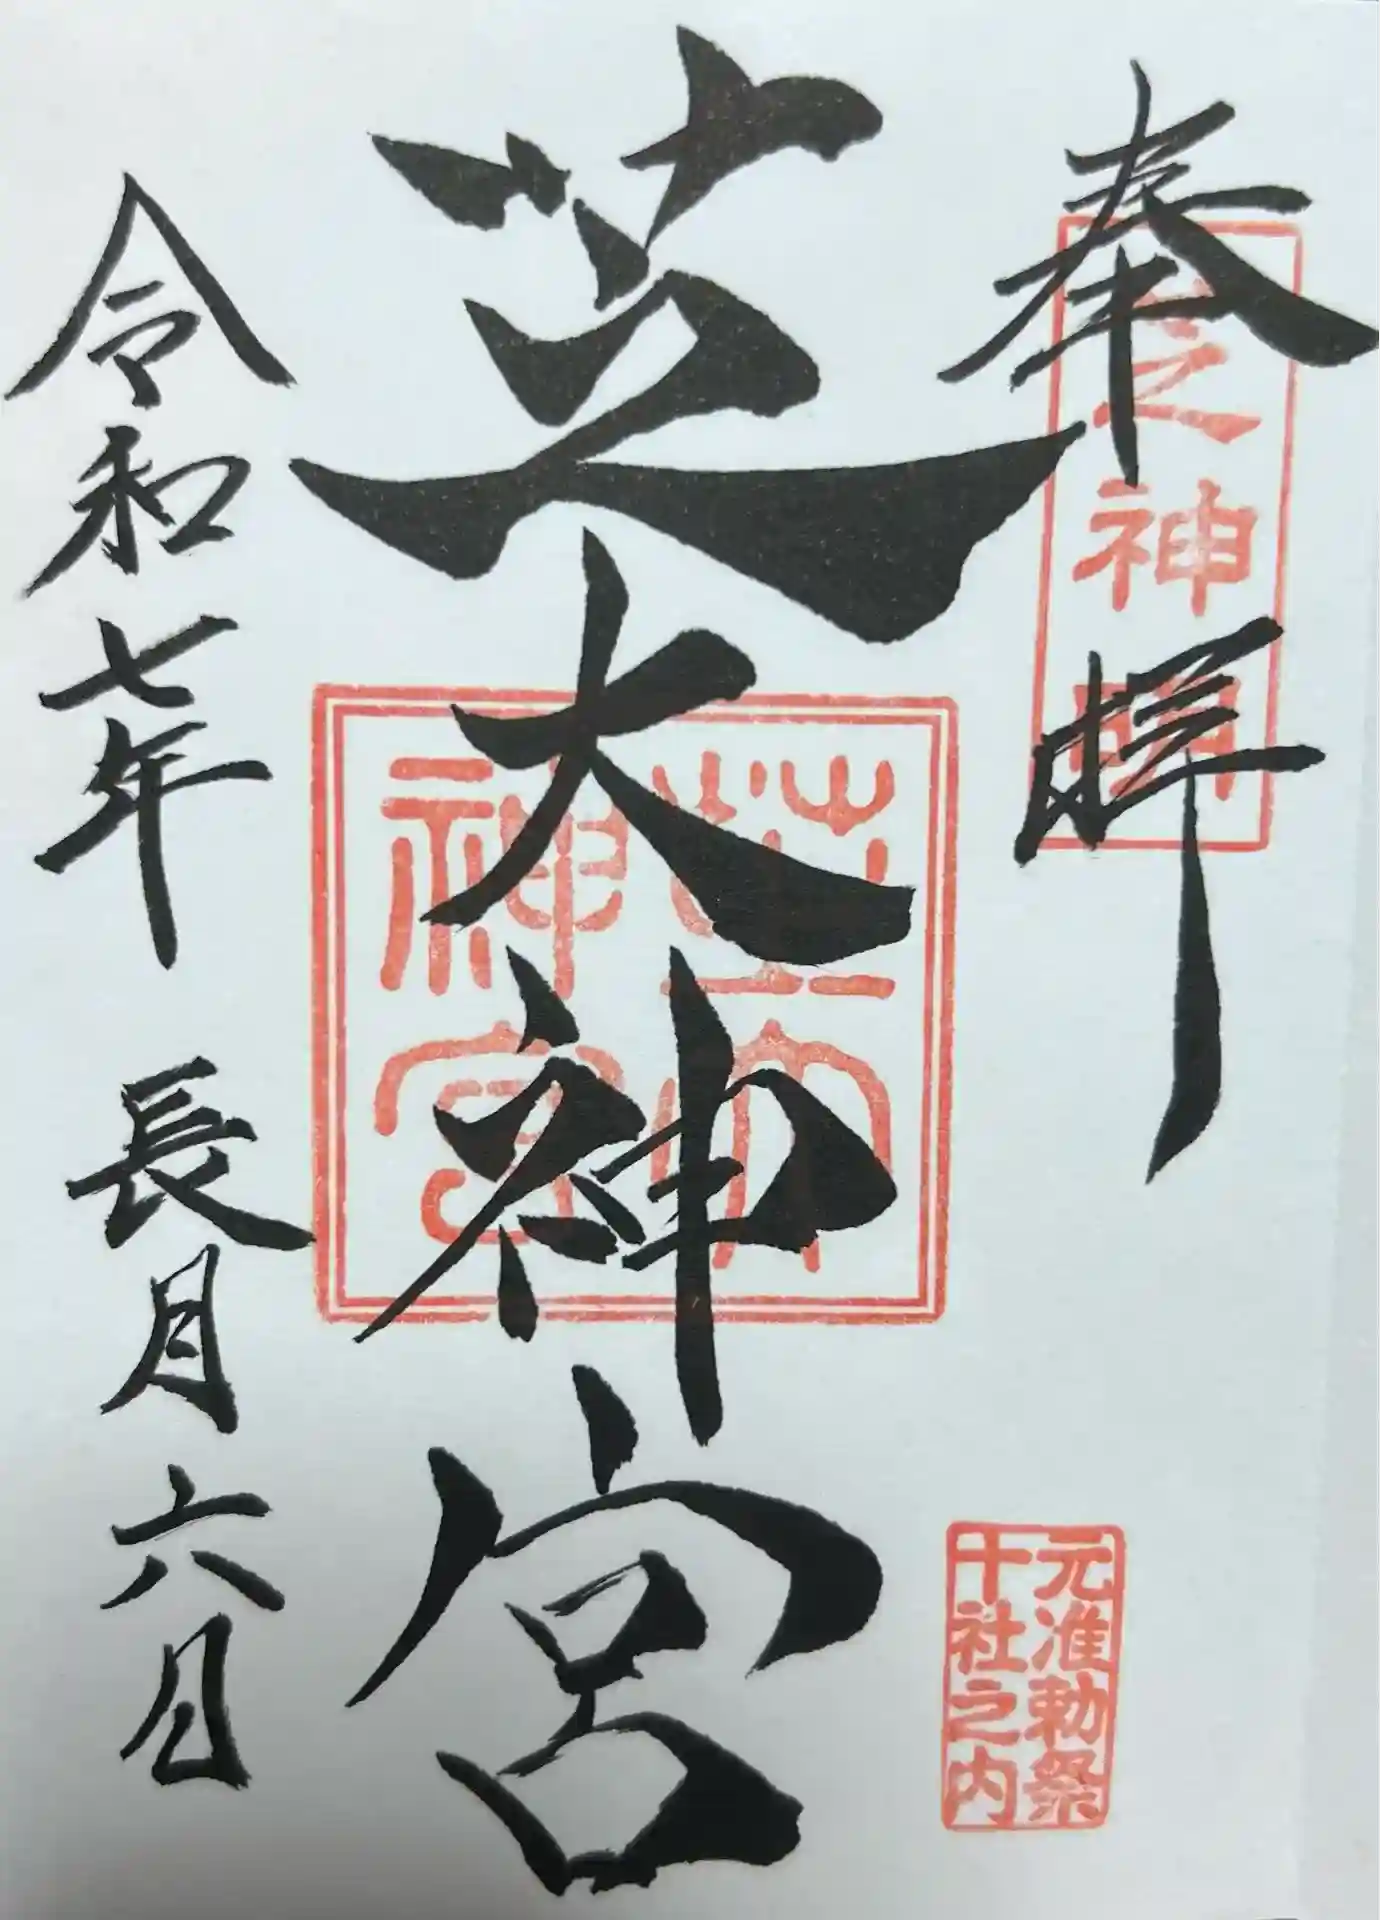 奉拝
芝之神明
芝大神宮
芝大
神宮
元准勅祭
十社之内
令和七年 長月六日